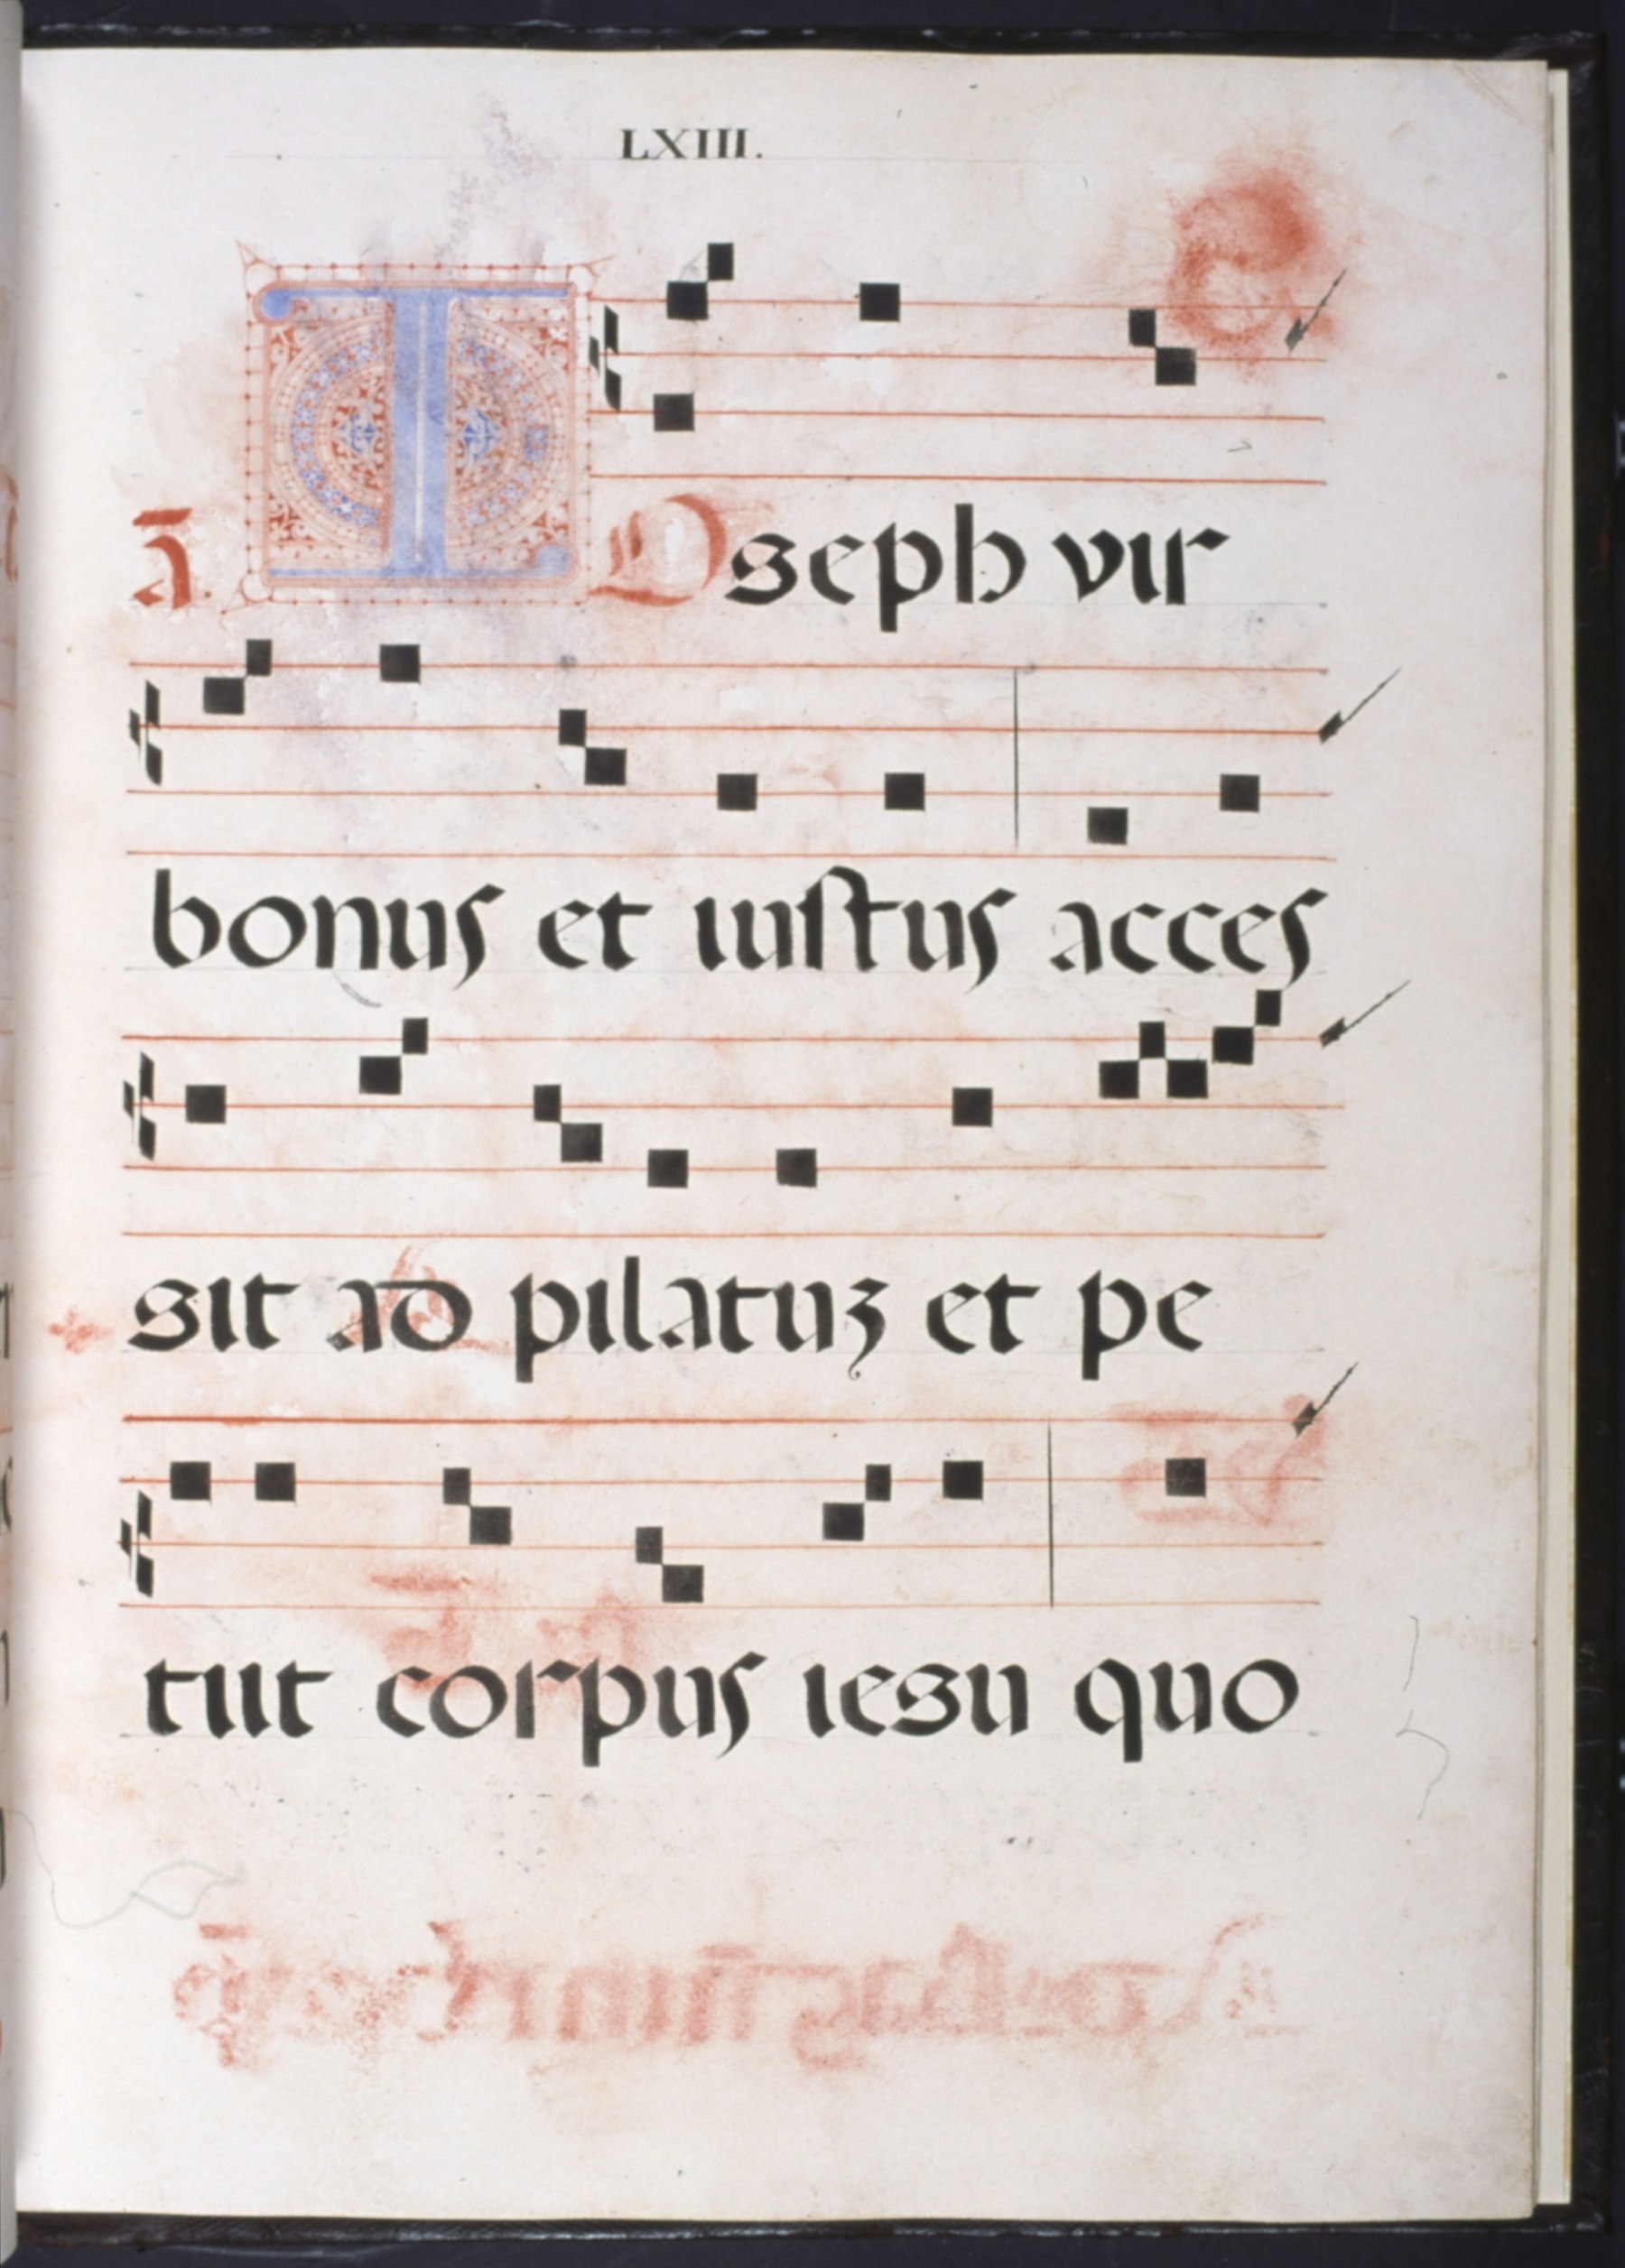 LXIII.
ā. IOseph vir
bonus et iustus acces
sit ad pilatuz et pe
tiit corpus iesu quo